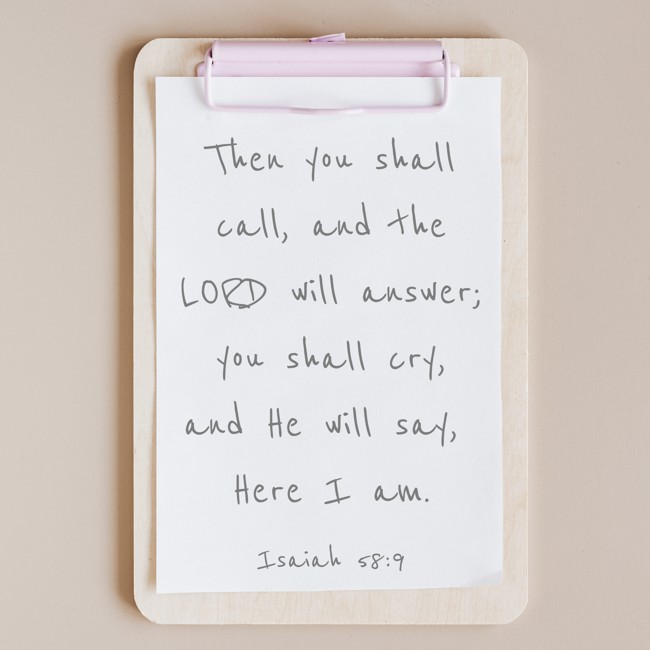 Then you shall
call, and the
LORD will answer;
you shall cry,
and He will say,
Here I am.
Isaiah 58:9